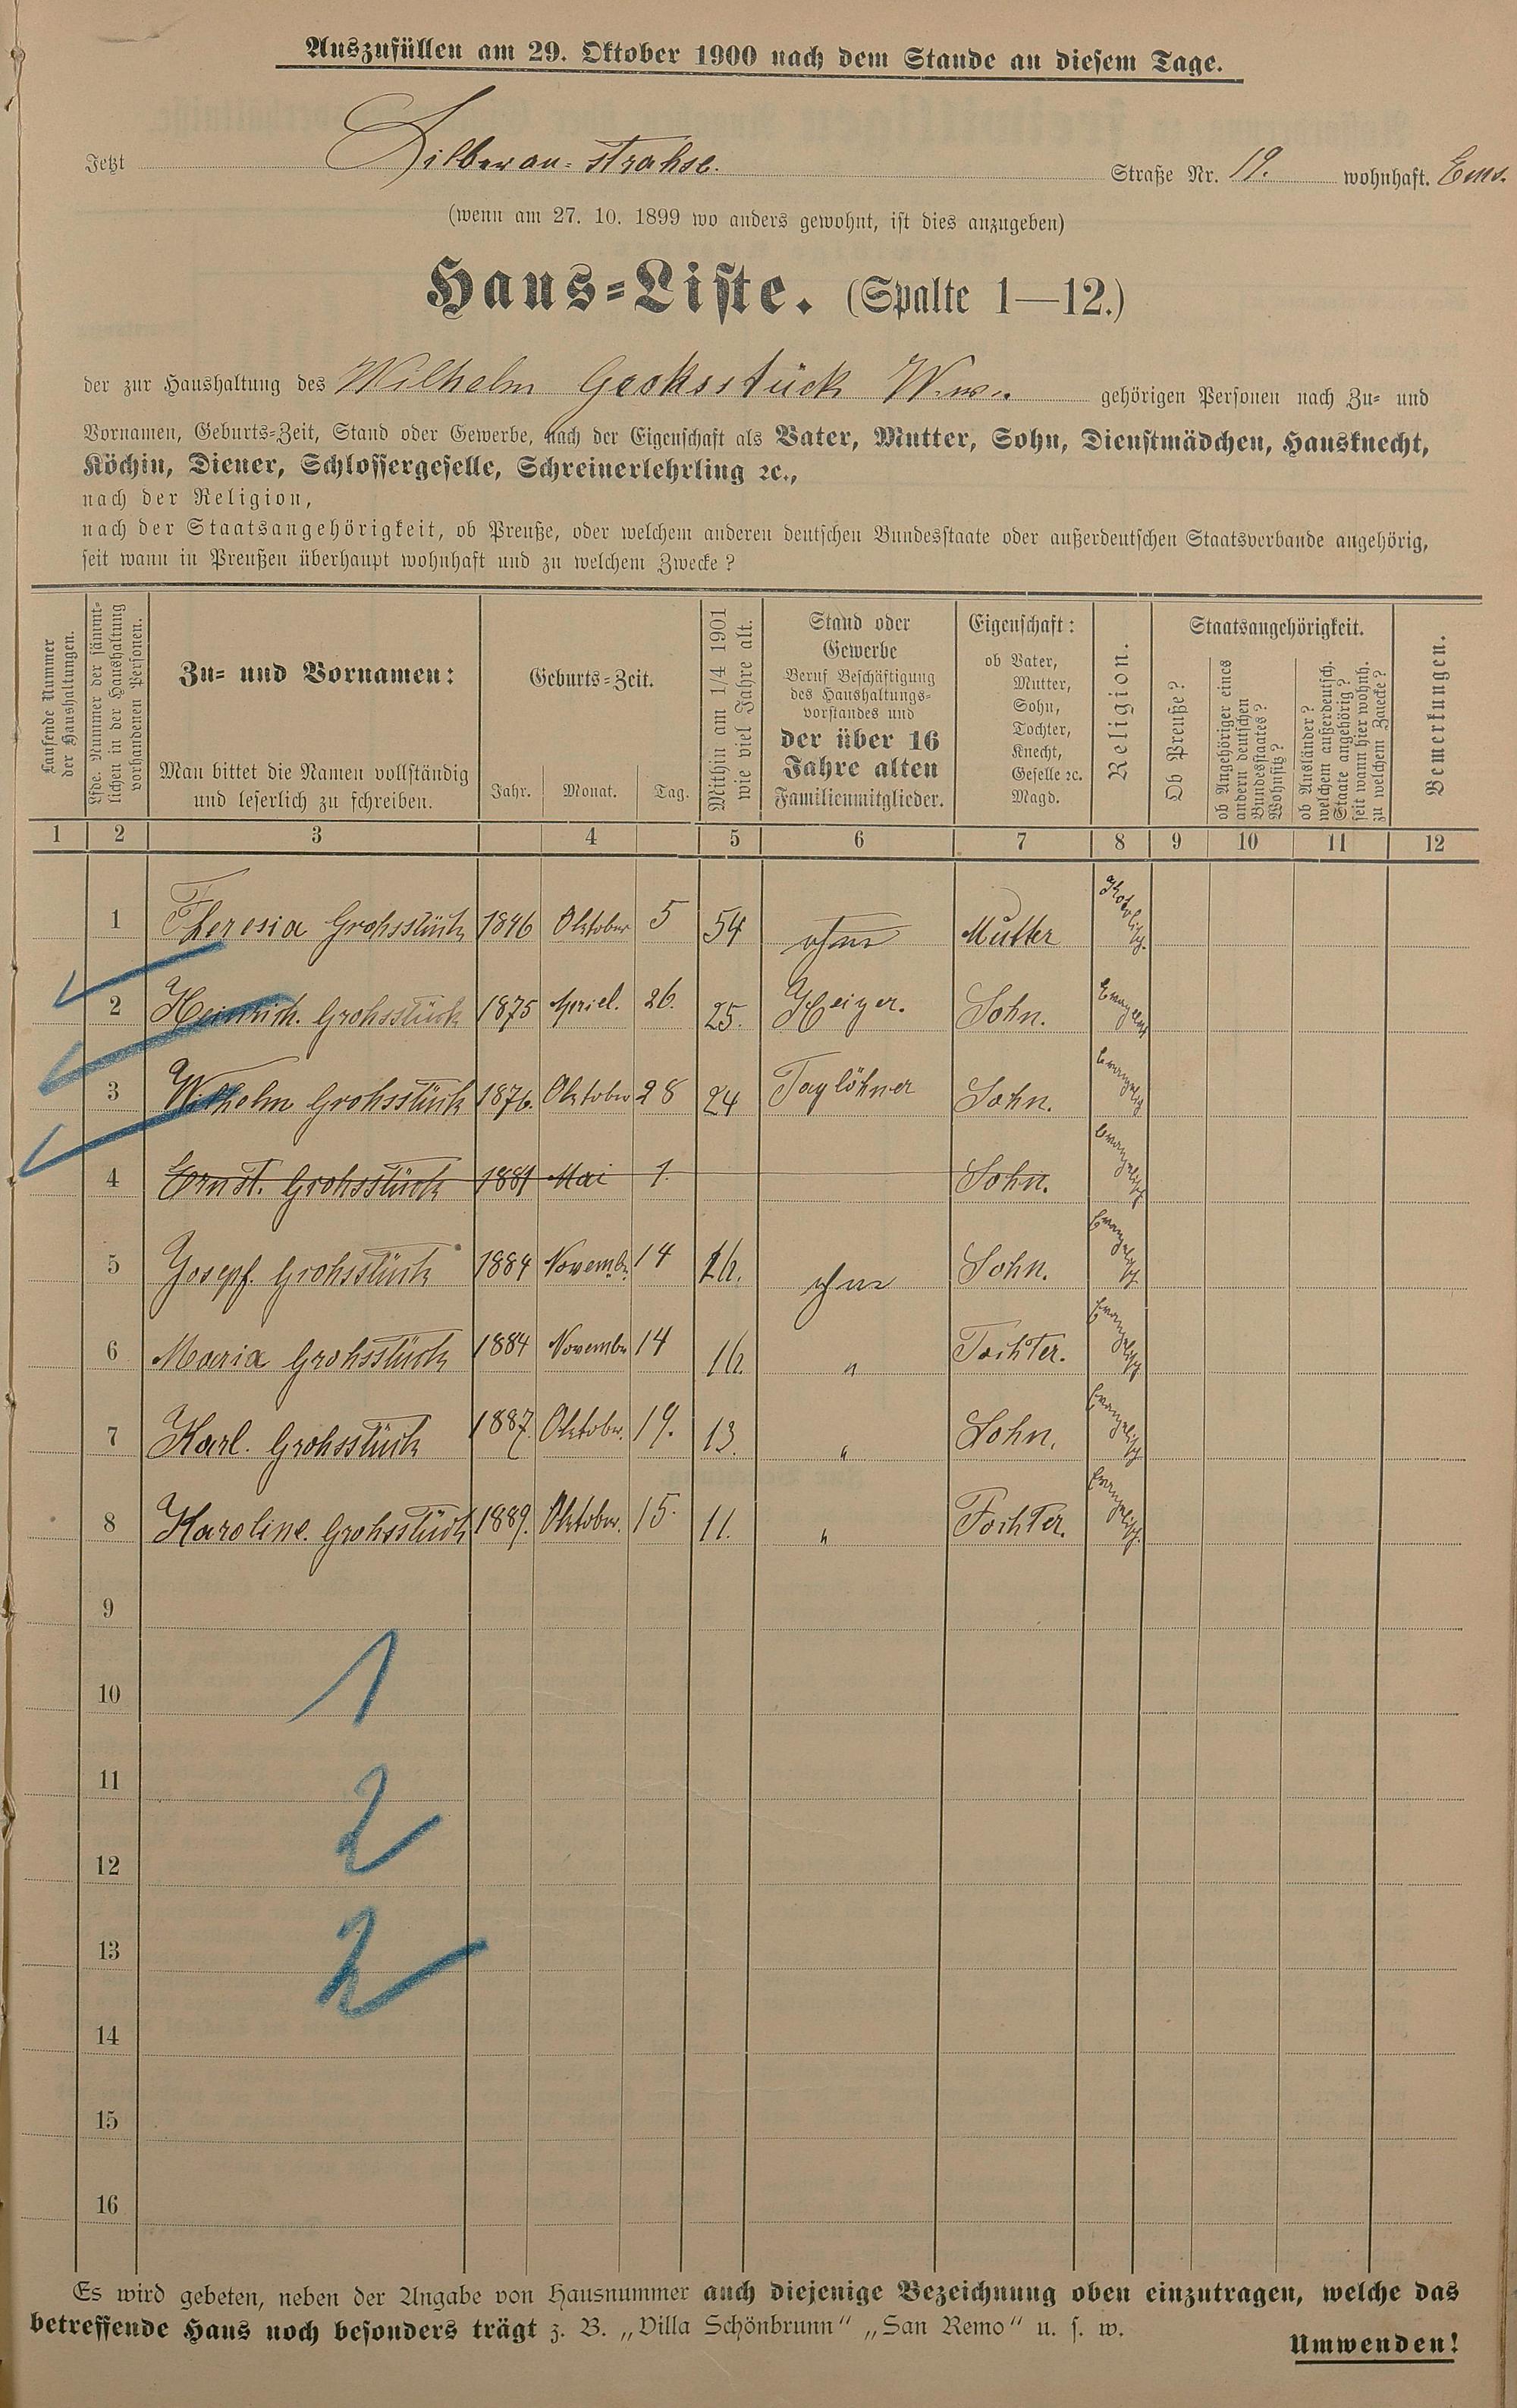 Auszufüllen am 29. Oktober 1900 nach dem Stande an diesem Tage.
Jetzt Silberau-strahse. Straße Nr. 19. wohnhaft. Ems.
(wenn am 27. 10. 1899 wo anders gewohnt, ist dies anzugeben)
Haus-Liste. (Spalte 1—12.)
der zur Haushaltung des Wilhelm Grohsstück Wwe. gehörigen Personen nach Zu- und
Vornamen, Geburts-Zeit, Stand oder Gewerbe, nach der Eigenschaft als Vater, Mutter, Sohn, Dienstmädchen, Hausknecht,
Köchin, Diener, Schlossergeselle, Schreinerlehrling ꝛc.,
nach der Religion,
nach der Staatsangehörigkeit, ob Preuße, oder welchem anderen deutschen Bundesstaate oder außerdeutschen Staatsverbande angehörig,
seit wann in Preußen überhaupt wohnhaft und zu welchem Zwecke?
Laufende Nummer
der Haushaltungen.
Lfde. Nummer der sämmt-
lichen in der Haushaltung
vorhandenen Personen.
Zu- und Vornamen:
Man bittet die Namen vollständig
und leserlich zu schreiben.
Geburts-Zeit.
Jahr. Monat. Tag.
Mithin am 1/4 1901
wie viel Jahre alt.
Stand oder
Gewerbe
Beruf Beschäftigung
des Haushaltungs-
vorstandes und
der über 16
Jahre alten
Familienmitglieder.
Eigenschaft:
ob Vater,
Mutter,
Sohn,
Tochter,
Knecht,
Geselle ꝛc.
Magd.
Religion.
Staatsangehörigkeit.
Ob Preuße?
ob Angehöriger eines
andern deutschen
Bundesstaates?
Wohnsitz?
ob Ausländer?
welchem außerdeutsch.
Staate angehörig?
seit wann hier wohnh.
zu welchem Zwecke?
Bemerkungen.
1 2 3 4 5 6 7 8 9 10 11 12
1 Theresia Grohsstück 1846 Oktober 5 54 ohne Mutter Katolisch.
2 Heinrich. Grohsstück 1875 Apriel. 26. 25. Heizer. Sohn. Evangelisch
3 Wilhelm Grohsstück 1876. Oktober 28 24 Taglöhner Sohn. Evangelisch
4 Ernst. Grohsstück 1881 Mai 1. Sohn. Evangelisch
5 Josepf. Grohsstück 1884 November 14 16. ohne Sohn. Evangelisch
6 Maria Grohsstück 1884 November 14 16. " Tochter. Evangelisch
7 Karl. Grohsstück 1887. Oktober. 19. 13. " Sohn. Evangelisch
8 Karoline. Grohsstück 1889. Oktober. 15. 11. " Tochter. Evangelisch.
9
10 1
11
12 2
13 2
14
15
16
Es wird gebeten, neben der Angabe von Hausnummer auch diejenige Bezeichnung oben einzutragen, welche das
betreffende Haus noch besonders trägt z. B. „Villa Schönbrunn“ „San Remo“ u. s. w.
Umwenden!